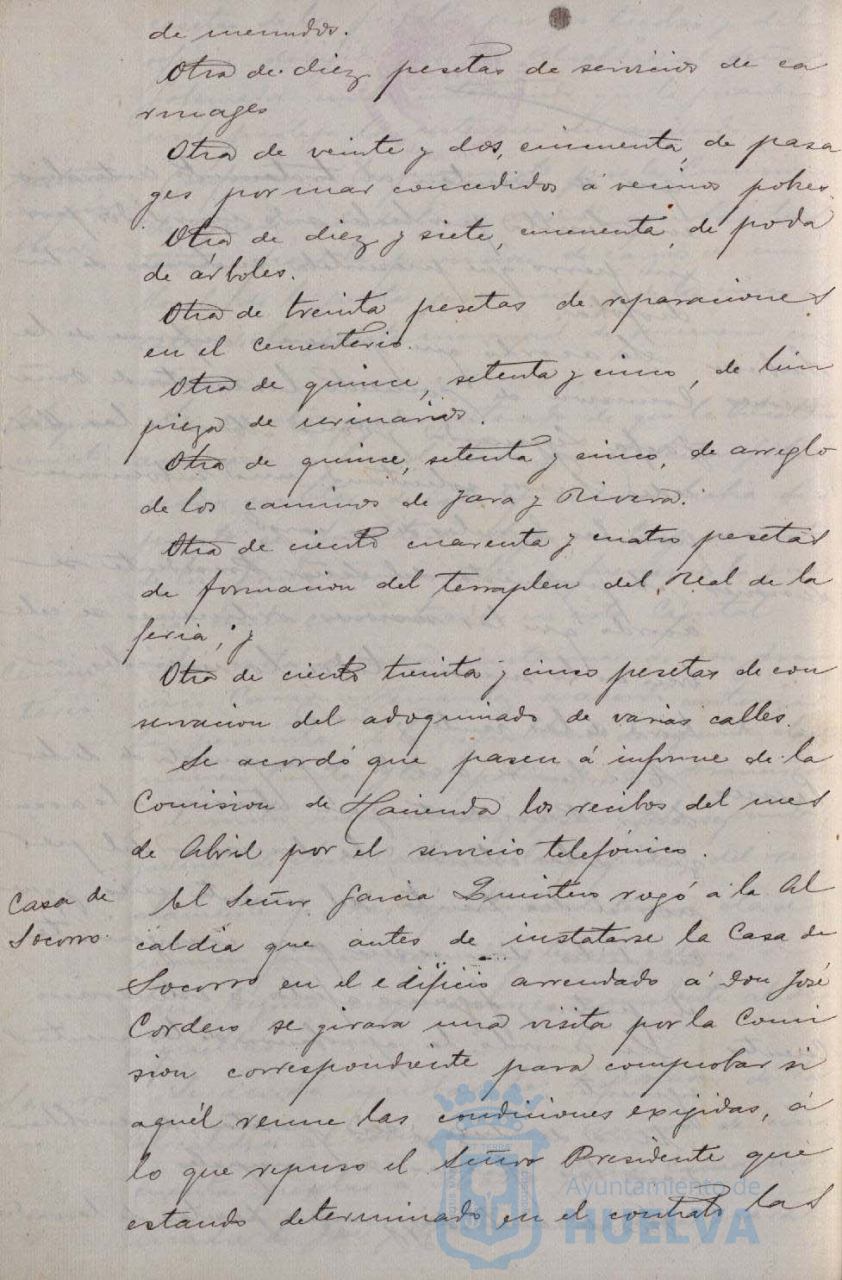 de menudos.
Otra de diez pesetas de servicios de ca
rruages
Otra de veinte y dos, cincuenta, de pasa
ges por mar concedidos á vecinos pobres.
Otra de diez y siete, cincuenta, de poda
de árboles.
Otra de treinta pesetas de reparaciones
en el cementerio.
Otra de quince, setenta y cinco, de lim
pieza de urinarios.
Otra de quince, setenta y cinco, de arreglo
de los caminos de Jara y Rivera.
Otra de ciento cuarenta y cuatro pesetas
de formacion del terraplen del Real de la
feria; y
Otra de ciento treinta y cinco pesetas de con
servacion del adoquinado de varias calles.
Se acordó que pasen á informe de la
Comision de Hacienda los recibos del mes
de Abril por el servicio telefónico.
Casa de
Socorro.
El Señor Garcia Quintero rogó á la Al
caldía que antes de instalarse la Casa de
Socorro en el edificio arrendado á Don José
Cordero se girara una visita por la Comi
sion correspondiente para comprobar si
aquél reune las condiciones exigidas, á
lo que repuso el Señor Presidente que
estando determinado en el contrato las
Ayuntamiento de
HUELVA